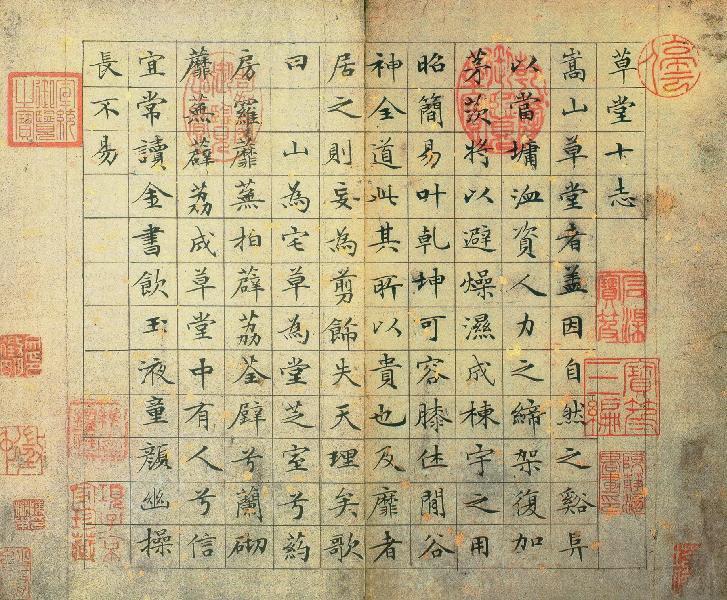 草堂十志
嵩山草堂者盖因自然之谿阜
以當墉洫資人力之締架復加
茅茨將以避燥濕成棟宇之用
昭簡易叶乾坤可容膝休閒谷
神全道此其所以貴也及靡者
居之則妄為剪餙失天理矣歌
曰 山為宅草為堂芝室兮葯
房羅蘼蕪拍薜荔荃壁兮蘭砌
蘼蕪薜荔成草堂中有人兮信
宜常讀金書飲玉液童顏幽操
長不易
石渠寶笈
寶笈三編
乾隆御覽之寶
宣統御覽之寶
項子京家珍藏